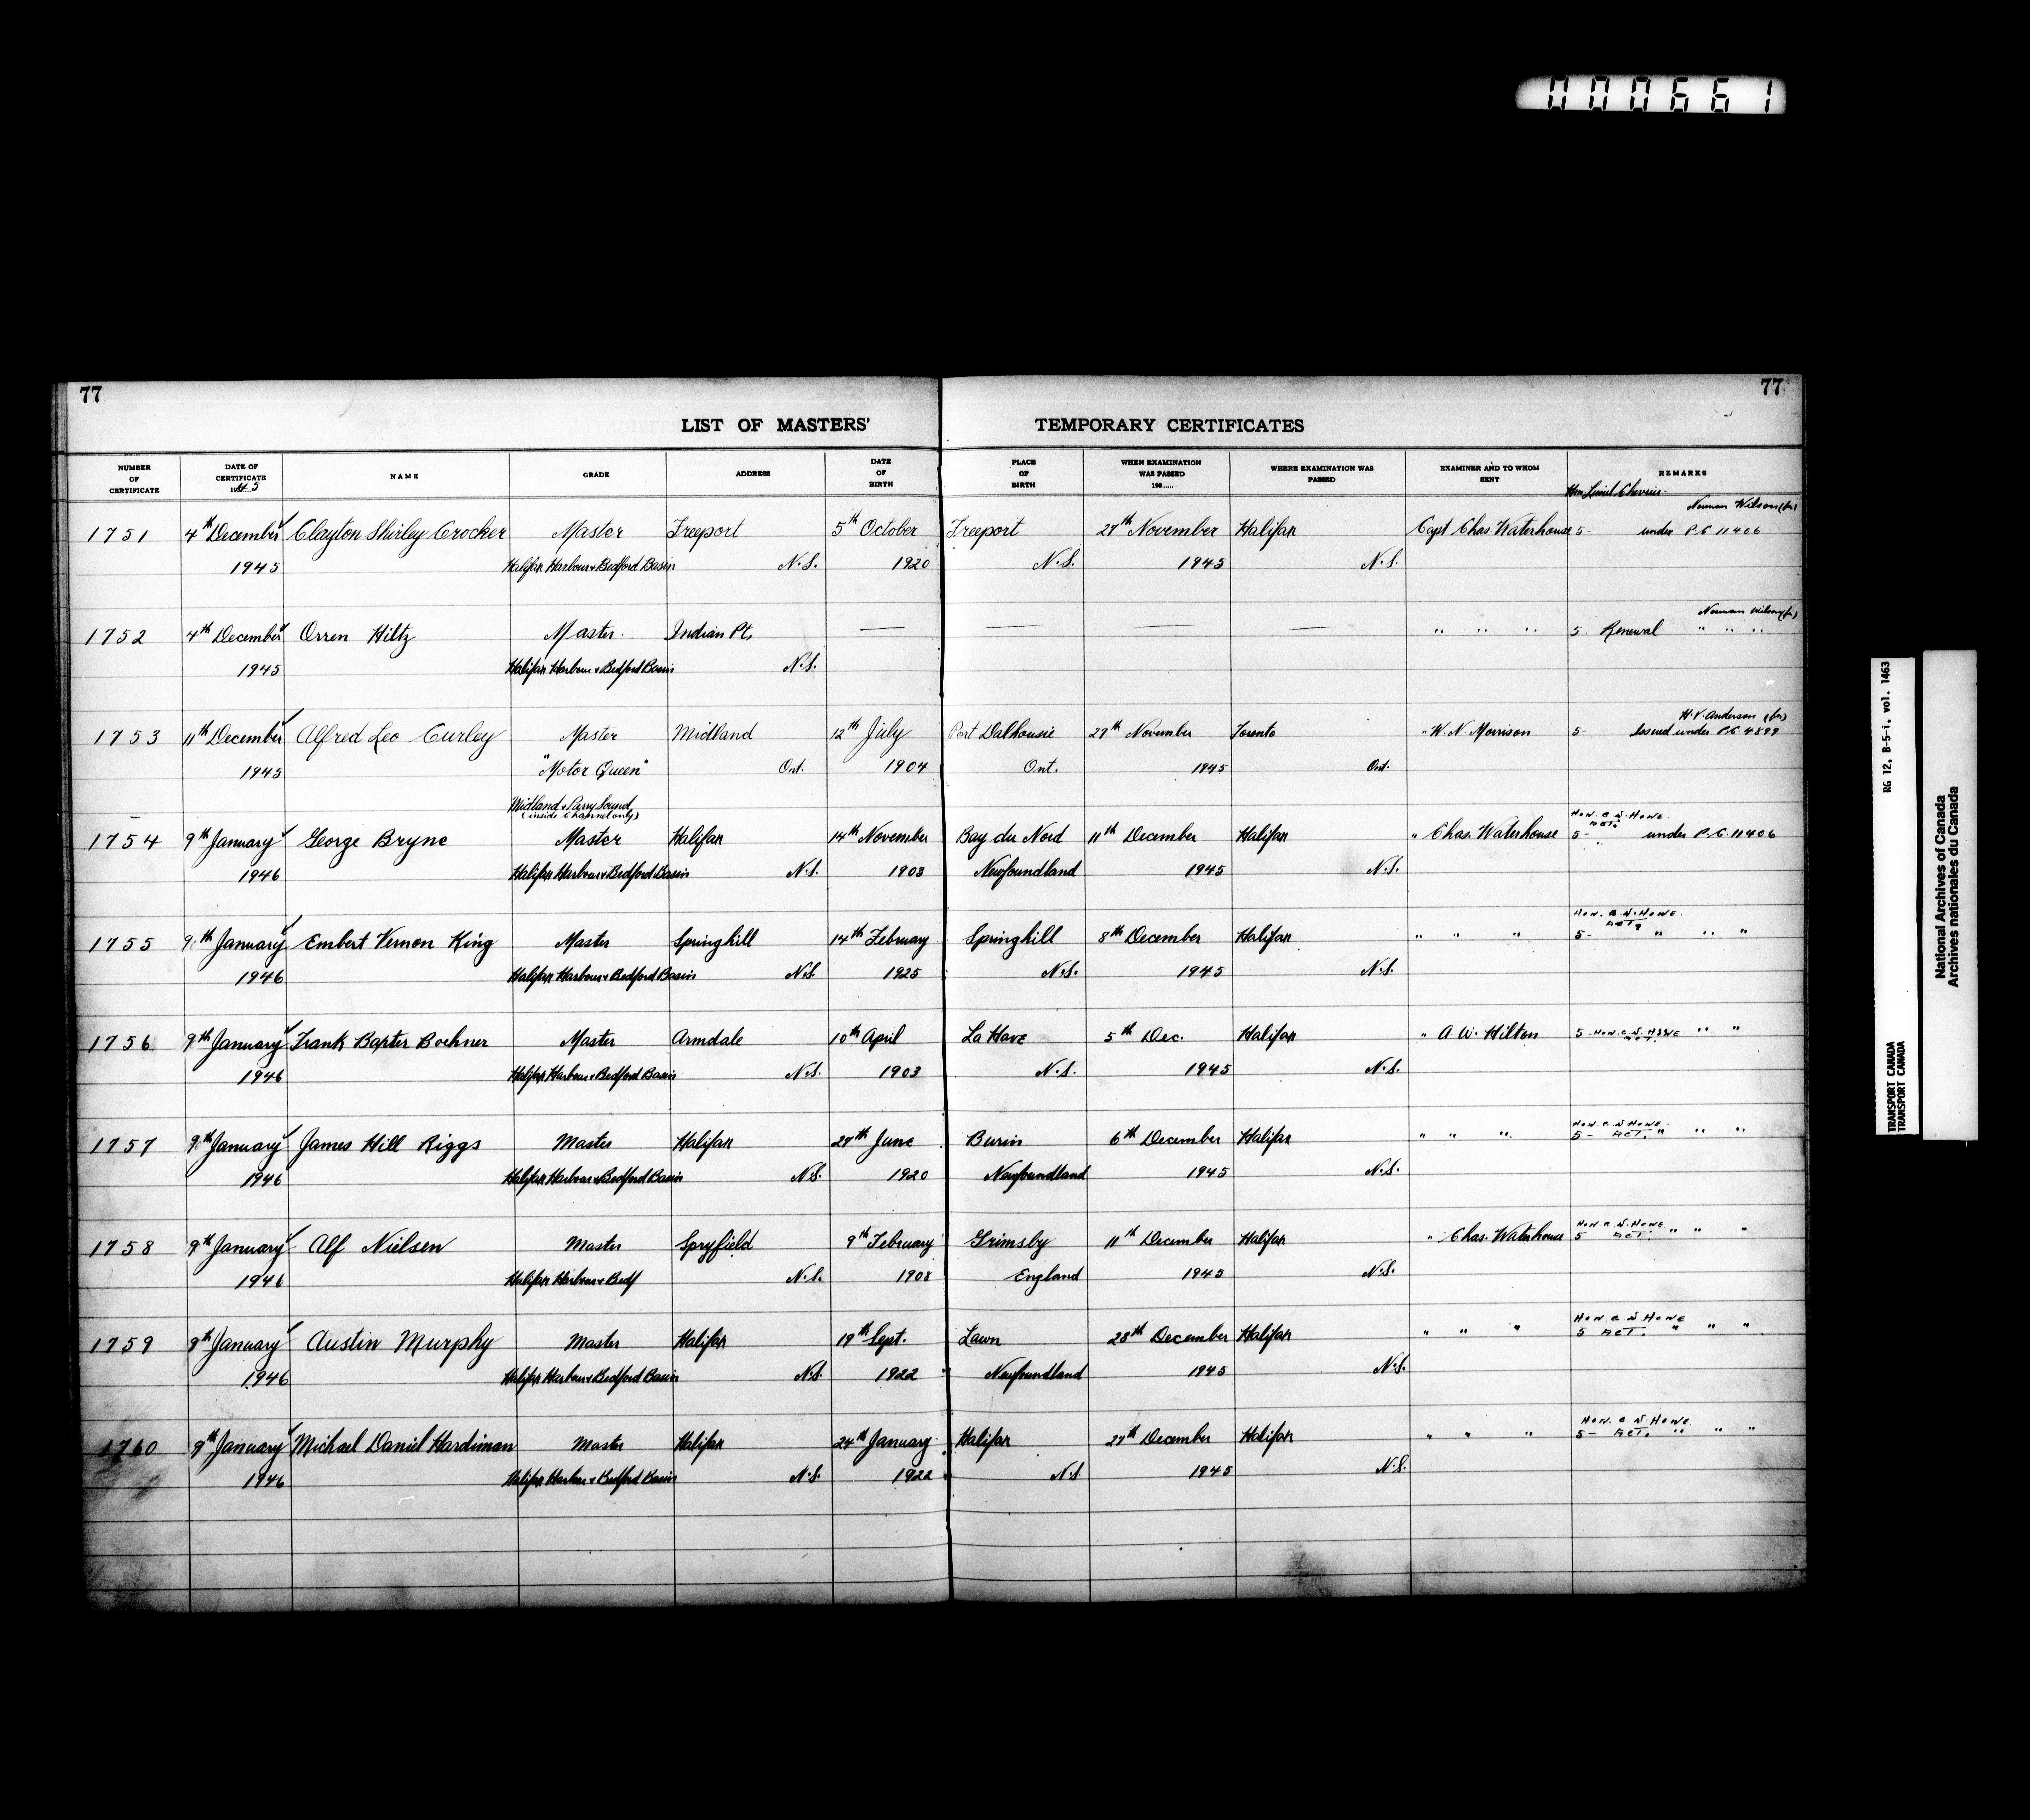 000661
77 77
LIST OF MASTERS' TEMPORARY CERTIFICATES
NUMBER OF CERTIFICATE DATE OF CERTIFICATE 1945 NAME GRADE ADDRESS DATE OF BIRTH PLACE OF BIRTH WHEN EXAMINATION WAS PASSED 193..... WHERE EXAMINATION WAS PASSED EXAMINER AND TO WHOM SENT REMARKS
Hon Lionel Chevrier
Norman Wilson (for)
1751 4th December Clayton Shirley Crocker Master Freeport 5th October Freeport 27th November Halifax Capt Chas Waterhouse 5- under P.C 11406
1945 Halifax Harbour & Bedford Basin N.S. 1920 N.S. 1945 N.S.
Norman Wilson (for)
1752 4th December Orren Hiltz Master. Indian Pt. — — — — " " " 5. Renewal " " "
1945 Halifax Harbour & Bedford Basin N.S.
H.V. Anderson (for)
1753 11th December Alfred Leo Curley Master Midland 12th July Port Dalhousie 29th November Toronto " W. N. Morrison 5- Issued under P.C 4899
1945 "Motor Queen" Ont. 1904 Ont. 1945 Ont.
Midland & Parry Sound
(inside Channel only)
HON. C. D. HOWE.
ACT.
1754 9th January George Bryne Master Halifax 14th November Bay du Nord 11th December Halifax " Chas. Waterhouse 5- under P.C. 11406
1946 Halifax Harbour & Bedford Basin N.S. 1903 Newfoundland 1945 N.S.
HON. C. D. HOWE.
ACT.
1755 9th January Embert Vernon King Master Springhill 14th February Springhill 8th December Halifax " " " 5- " " "
1946 Halifax Harbour & Bedford Basin N.S. 1925 N.S. 1945 N.S.
1756 9th January Frank Baxter Boehner Master Armdale 10th April La Have 5th Dec. Halifax " A. W. Hilton 5- HON. C. D. HOWE ACT. " "
1946 Halifax Harbour & Bedford Basin N.S. 1903 N.S. 1945 N.S.
HON. C. D. HOWE.
1757 9th January James Hill Riggs Master Halifax 27th June Burin 6th December Halifax " " " 5- ACT. " " "
1946 Halifax Harbour & Bedford Basin N.S. 1920 Newfoundland 1945 N.S.
HON. C. D. HOWE
1758 9th January Alf Nielsen Master Spryfield 9th February Grimsby 11th December Halifax " Chas. Waterhouse 5 ACT. " " "
1946 Halifax Harbour & Bedf N.S. 1908 England 1945 N.S.
HON. C. D. HOWE
1759 9th January Austin Murphy Master Halifax 19th Sept. Lawn 28th December Halifax " " " 5 ACT. " " "
1946 Halifax Harbour & Bedford Basin N.S. 1922 Newfoundland 1945 N.S.
HON. C. D. HOWE.
1760 9th January Michael Daniel Hardiman Master Halifax 24th January Halifax 27th December Halifax " " " 5- ACT. " " "
1946 Halifax Harbour & Bedford Basin N.S. 1922 N.S 1945 N.S.
RG 12, B-5-i, vol. 1463
TRANSPORT CANADA
TRANSPORT CANADA
National Archives of Canada
Archives nationales du Canada